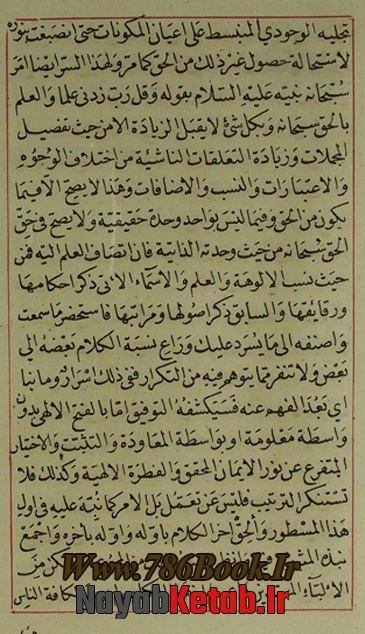 تجليه الوجودي المنبسط على اعيان المكونات حتى انصبغت بنوره
لاستحالة حصول غير ذلك من الحق كما مر ولهذا السر ايضا امر
سبحانه نبيه عليه السلام بقوله وقل رب زدني علما والعلم
بالحق سبحانه وبكل شئ لا يقبل الزيادة الا من حيث تفصيل
المجملات وزيادة التعلقات الناشئة من اختلاف الوجوه
والاعتبارات والنسب والاضافات وهذا لا يصح الا فيما
يكون من الحق وفيما ليس بواحد وحدة حقيقية ولا يصح في حق
الحق سبحانه من حيث وحدته الذاتية فان اتصاف العلم اليه فمن
حيث نسب الالوهة والعلم والاسماء الاتى ذكر احكامها
ورقايقها والسابق ذكر اصولها ومراتبها فاستحضر ما سمعت
واضفه الى ما يسرد عليك وراع نسبة الكلام بعضه الى
بعض ولا تنفر مما يتوهم فيه من التكرار ففي ذلك اسرار وما نبا
اي بعد الفهم عنه فسيكشفه التوفيق اما بالفتح الالهي بدون
واسطة معلومة او بواسطة المعاودة والتثبت والاختبار
المتفرع عن نور الايمان المحقق والفطرة الالهية وكذلك فلا
تستنكر الترتيب فليس عن تعمل بل الامر كما نبه عليه في اول
هذا المسطور والحق اخر الكلام باوله واوله باخره واجمع
نبذه
الالباء
كافة الناس
Www.786Book.Ir
NayabKetab.Ir